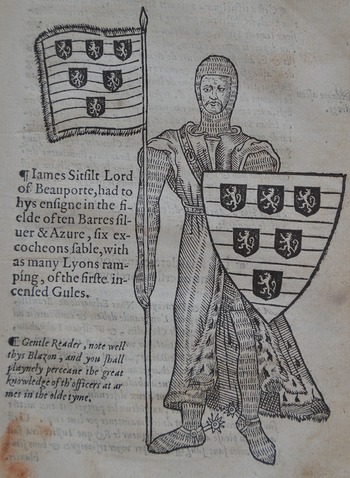 ¶ Iames Sitsilt Lord
of Beauporte, had to
hys ensigne in the fi-
elde of ten Barres sil-
uer & Azure, six ex-
cocheons sable, with
as many Lyons ram-
ping, of the firste in-
censed Gules.
¶ Gentle Reader, note well
thys Blazon, and you shall
playnely perceaue the great
knowledge of th'officers at ar
mes in the olde tyme.